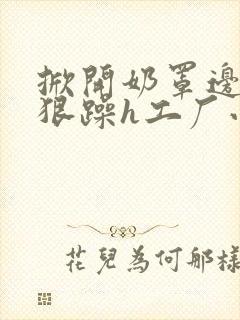 掀開奶罩邊
狠躁h工厂
花兒為何那樣